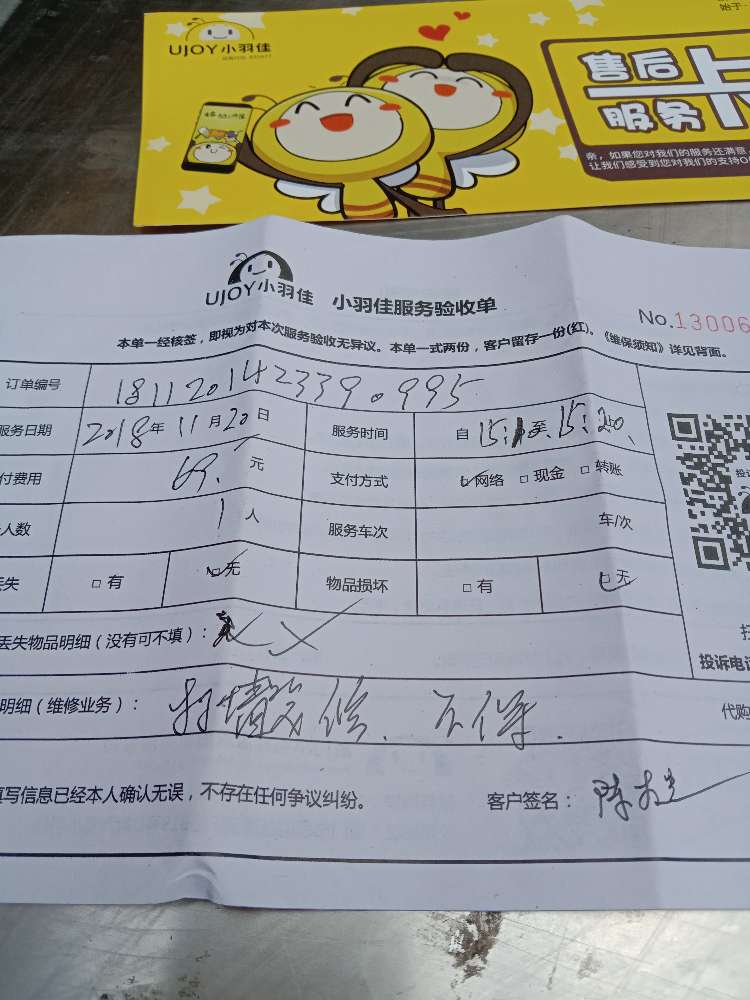 始于
UJOY小羽佳
售后
服务
亲，如果您对我们的服务还满意
让我们感受到您对我们的支持
UJOY小羽佳 小羽佳服务验收单
No.13006
本单一经核签，即视为对本次服务验收无异议。本单一式两份，客户留存一份(红)。《维保须知》详见背面。
订单编号 181120142339.995
服务日期 2018年11月20日 服务时间 自15: 至15:
付费用 69.元 支付方式 网络 □现金 □转账
人数 1人 服务车次 车/次
丢失 □有 □无 物品损坏 □有 □无
丢失物品明细（没有可不填）：
明细（维修业务）： 代购
投诉电话
填写信息已经本人确认无误，不存在任何争议纠纷。 客户签名：陈